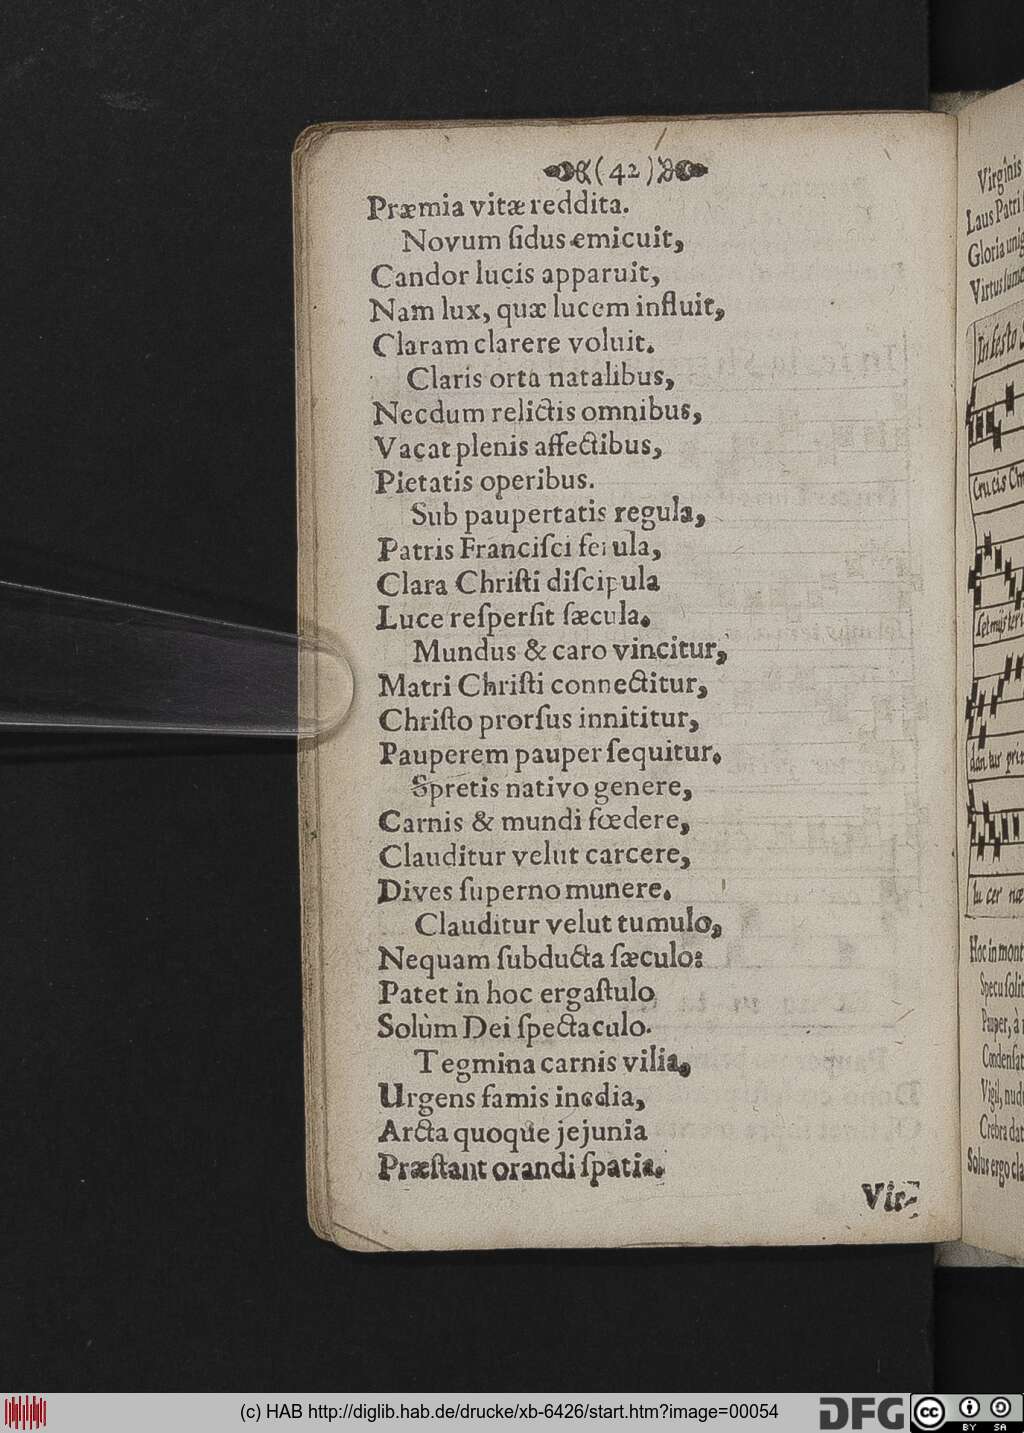 (42)
Præmia vitæ reddita.
Novum ſidus emicuit,
Candor lucis apparuit,
Nam lux, quæ lucem influit,
Claram clarere voluit.
Claris orta natalibus,
Necdum relictis omnibus,
Vacat plenis affectibus,
Pietatis operibus.
Sub paupertatis regula,
Patris Franciſci ferula,
Clara Chriſti diſcipula
Luce reſperſit ſæcula.
Mundus & caro vincitur,
Matri Chriſti connectitur,
Chriſto prorſus innititur,
Pauperem pauper ſequitur.
Spretis nativo genere,
Carnis & mundi fœdere,
Clauditur velut carcere,
Dives ſuperno munere.
Clauditur velut tumulo,
Nequam ſubducta ſæculo:
Patet in hoc ergaſtulo
Solùm Dei ſpectaculo.
Tegmina carnis vilia,
Urgens famis inedia,
Arcta quoque jejunia
Præſtant orandi ſpatia.
Vir-
Virginis
Laus Patri
Gloria
In feſto
Crucis
Hoc in mont
Specu ſolit
Pauper, à
Condenſat
Vigil, nud
Crebra dat
Solus ergo cla
(c) HAB http://diglib.hab.de/drucke/xb-6426/start.htm?image=00054
DFG
cc BY SA